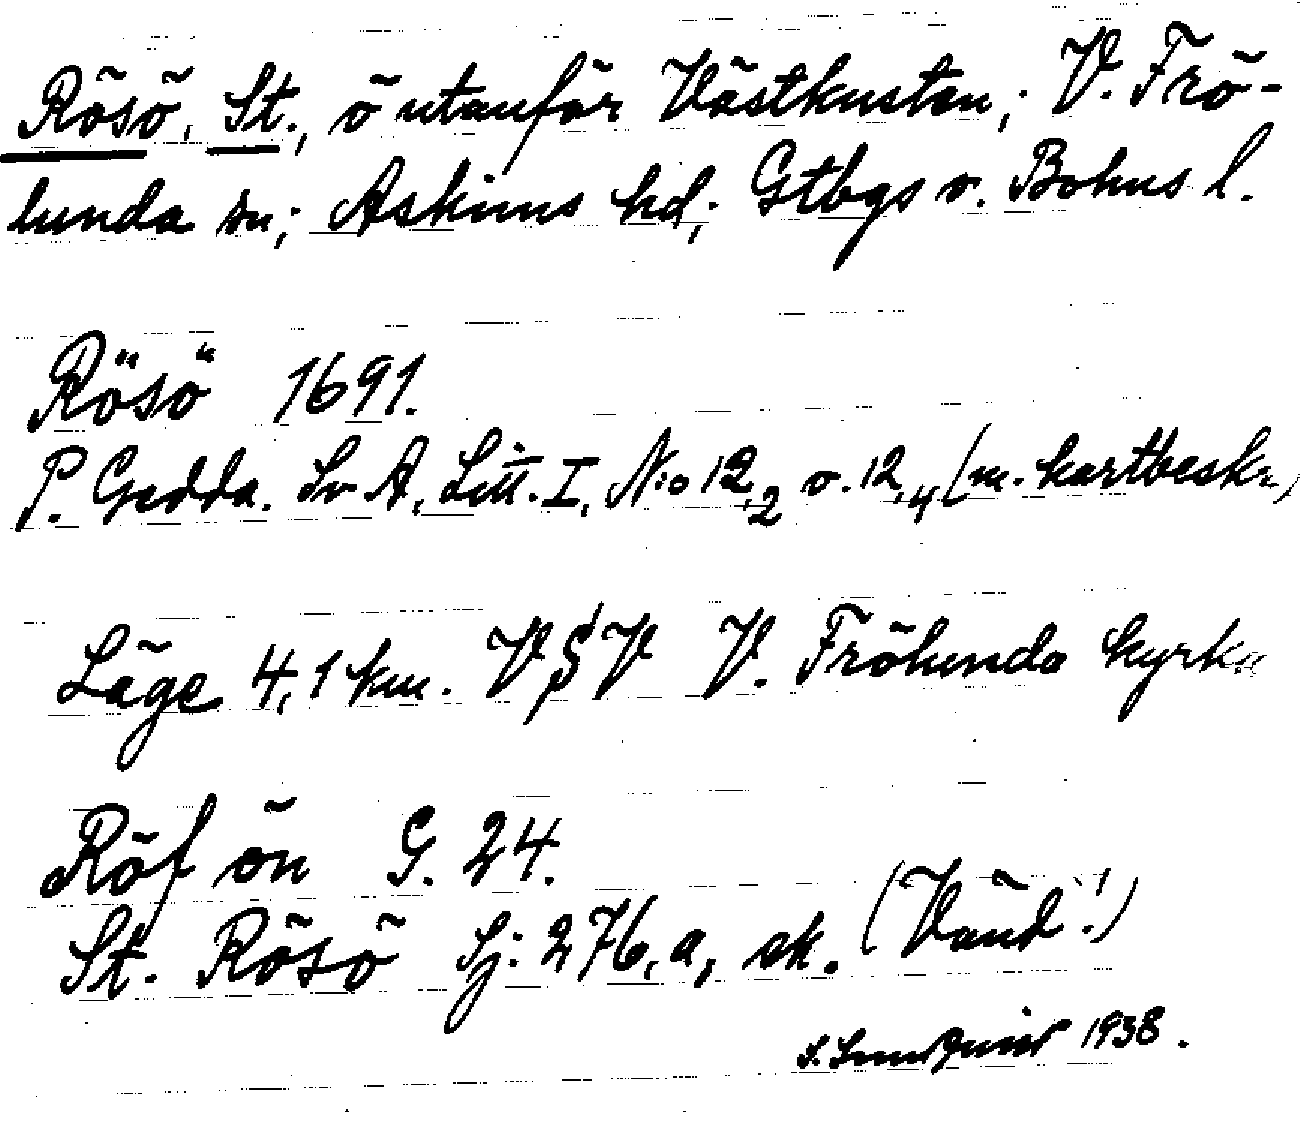 Rösö, St., ö utanför Västkusten; V. Frö-
lunda sn; Askims hd; Gtbgs o. Bohus l.
Rösö 1691.
P. Gedda. Sv A, Litt. I, N:o 12,2 o. 12,4 (m. kartbeskr.)
Läge 4,1 km. V§V V. Frölunda kyrka
Röf ön G. 24.
St. Rösö Sj: 276, a, sk. (Vänd!)
1938.